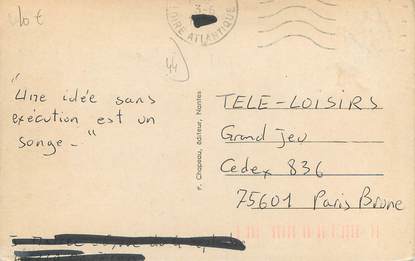 lot
3-6
LOIRE ATLANTIQUE
44
"Une idée sans
exécution est un
songe-"
P. Chapeau, éditeur, Nantes
TELE-LOISIRS
Grand Jeu
Cedex 836
75601 Paris Brune